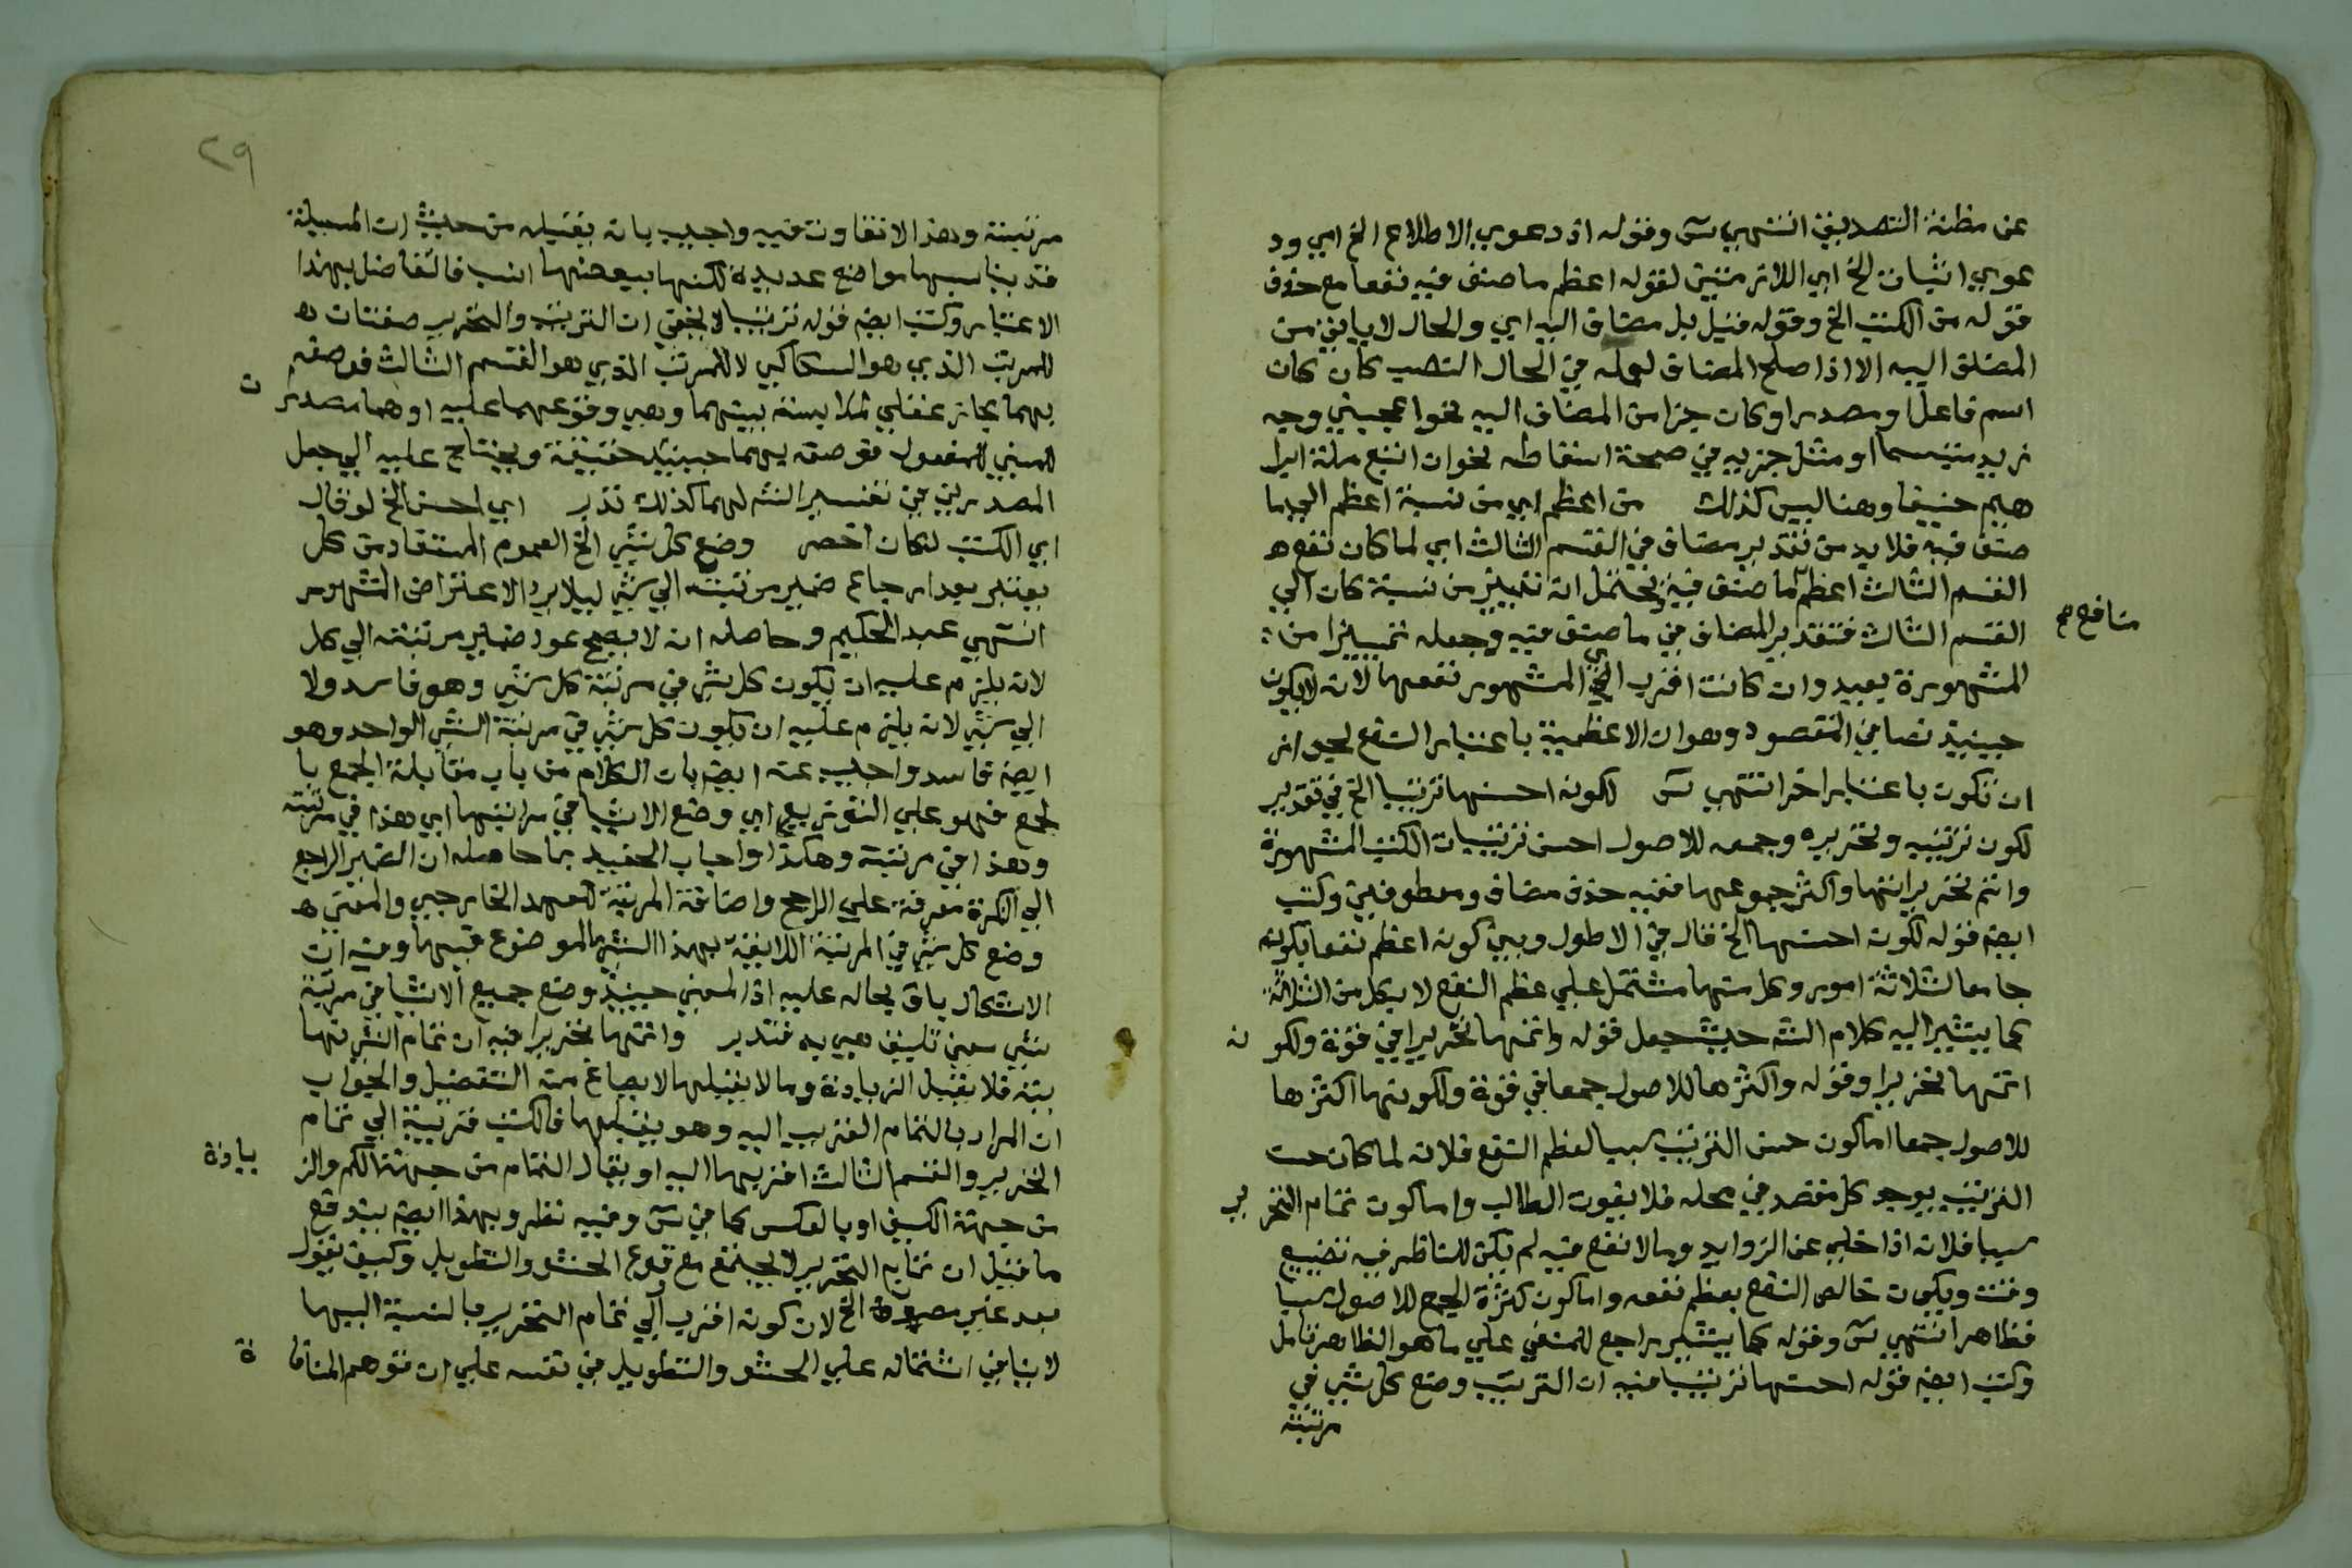 عن مظنة التصديق انتهي سى وقوله اذ دعوي الاطلاع الخ اي ود
عوي اثبات الخ اي اللازمتين لقوله اعظم ما صنف فيه نفعا مع حذف
قوله من الكتب الخ وقوله قبل بل مضاف اليه اي والحال لا ياتي من
المضاف اليه الا اذا صلح المضاف لعمله في الحال النصب كان كان
اسم فاعل او مصدرا وكان جزا من المضاف اليه نحو اعجبني وجه
زيد متبسما او مثل جزيه في صحة اسقاطه نحو ان اتبع ملة ابرا
هيم حنيفا وهنا ليس كذلك من اعظم اي من نسبة اعظم الي ما
صنف فيه فلا بد من تقدير مضاف في القسم الثالث اي لما كان نفع
القسم الثالث اعظم ما صنف فيه ويحتمل انه تمييز من نسبة كان الي
القسم الثالث فتقدير المضاف في ما صنف فيه وجعله تمييزا من
منافع صح
المشهورة بعيد وان كانت اقرب الي المشهور نفعها لانه لا يكون
حينيذ نصا في المقصود وهو ان الاعظمية باعتبار النفع لجواز
ان تكون باعتبار اخر انتهي سى لكونه احسنها ترتيبا الخ في تقدير
لكون ترتيبه وتحريره وجمعه للاصول احسن ترتيبات الكتب المشهورة
واتم تحريراتها واكثر جموعها ففيه حذف مضاف ومعطوفين وكتب
ايضه قوله لكونه احسنها الخ قال في الاطول وبين كونه اعظم نفعا بكونه
جامعا لثلاثة امور وكل منها مشتمل علي عظم النفع لا بكل من الثلاثة
كما يشير اليه كلام الشه حيث جعل قوله واتمها تحريرا في قوة ولكو نه
اتمها تحريرا وقوله واكثرها للاصول جمعا في قوة ولكونها اكثرها
للاصول جمعا اما كون حسن الترتيب سببا لعظم النفع فلانه لما كان حسن
الترتيب يوجد كل مقصد في محله فلا يفوت الطالب واما كون تمام التحر ير
سببا فلانه اذا خلي عن الزوايد وما لا نفع فيه لم يكن للناظر فيه تضييع
وقت ويكون خالص النفع بعظم نفعه واما كون كثرة الجمع للاصول سببا
فظاهر انتهي سى وقوله كما يشير راجع للمنفي علي ما هو الظاهر تامل
وكتب ايضه قوله احسنها ترتيبا فيه ان الترتيب وضع كل شي في
مرتبته
٢٩
مرتبته وهذا لا تفاوت فيه واجيب بانه يقبله من حيث ان المسيلة
قد يناسبها مواضع عديدة لكنها ببعضها انسب فالتفاضل بهذا
الاعتبار وكتب ايضه قوله ترتيبا لا يخفي ان الترتيب والتحرير صفتان
للمرتب الذي هو السكاكي لا للمرتب الذي هو القسم الثالث فوصفه
بهما مجاز عقلي لملابسة بينهما وهي وقوعهما عليه او هما مصدرا ن
للمبني للمفعول فوصفه بهما حينيذ حقيقة ويحتاج عليه الي جعل
المصدرين في تفسير الشه لهما كذلك تدبر اي احسن الخ لو قال
اي الكتب لكان اخصر وضع كل شي الخ العموم المستفاد من كل
يعتبر بعد ارجاع ضمير مرتبته الي شي ليلا يرد الاعتراض المشهور
انتهي عبد الحكيم وحاصله انه لا يصح عود ضمير مرتبته الي كل
لانه يلزم عليه ان يكون كل شي في مرتبة كل شي وهو فاسد ولا
الي شي لانه يلزم عليه ان يكون كل شي في مرتبة الشي الواحد وهو
ايضه فاسد واجيب عنه ايضه بان الكلام من باب مقابلة الجمع با
لجمع فهو علي التوزيع اي وضع الاشيا في مراتبها اي هذا في مرتبته
وهذا في مرتبته وهكذا واجاب الحفيد بما حاصله ان الضمير الراجع
الي النكرة معرفة علي الراجح واضافة المرتبة للعهد الخارجي والمعني
وضع كل شي في المرتبة اللايقة بهذا الشي الموضوع فيها وفيه ان
الاشكال باق بحاله عليه اذ المعني حينيذ وضع جميع الاشيا في مرتبة
شي معين تليق هي به فتدبر واتمها تحريرا فيه ان تمام الشي نها
يته فلا يقبل الزيادة وما لا يقبلها لا يصاغ منه التفضيل والجواب
ان المراد بالتمام القريب اليه وهو يقبلها فالكتب قريبة الي تمام
التحرير والقسم الثالث اقربها اليه او يقال التمام من جهة الكم والز يادة
من جهة الكيف او بالعكس كما في سى وفيه نظر وبهذا ايضه يندفع
ما قيل ان تمام التحرير لا يجتمع مع وقوع الحشو والتطويل وكيف يقول
بعد غير مصون الخ لان كونه اقرب الي تمام التحرير بالنسبة اليها
لا ينافي اشتماله علي الحشو والتطويل في نفسه علي ان توهم المنافا ة